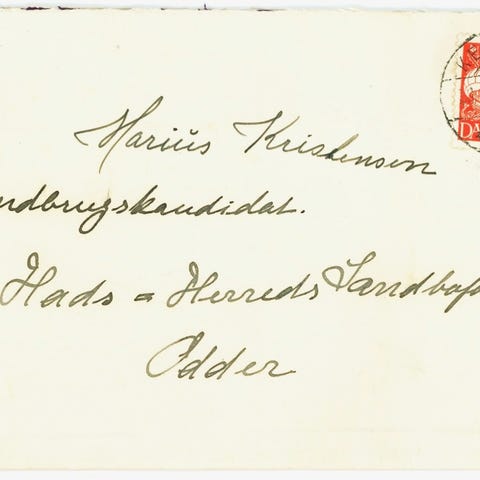 Marius Kristensen
ndbrugskandidat.
Hads = Herreds Landbofo
Odder
DA